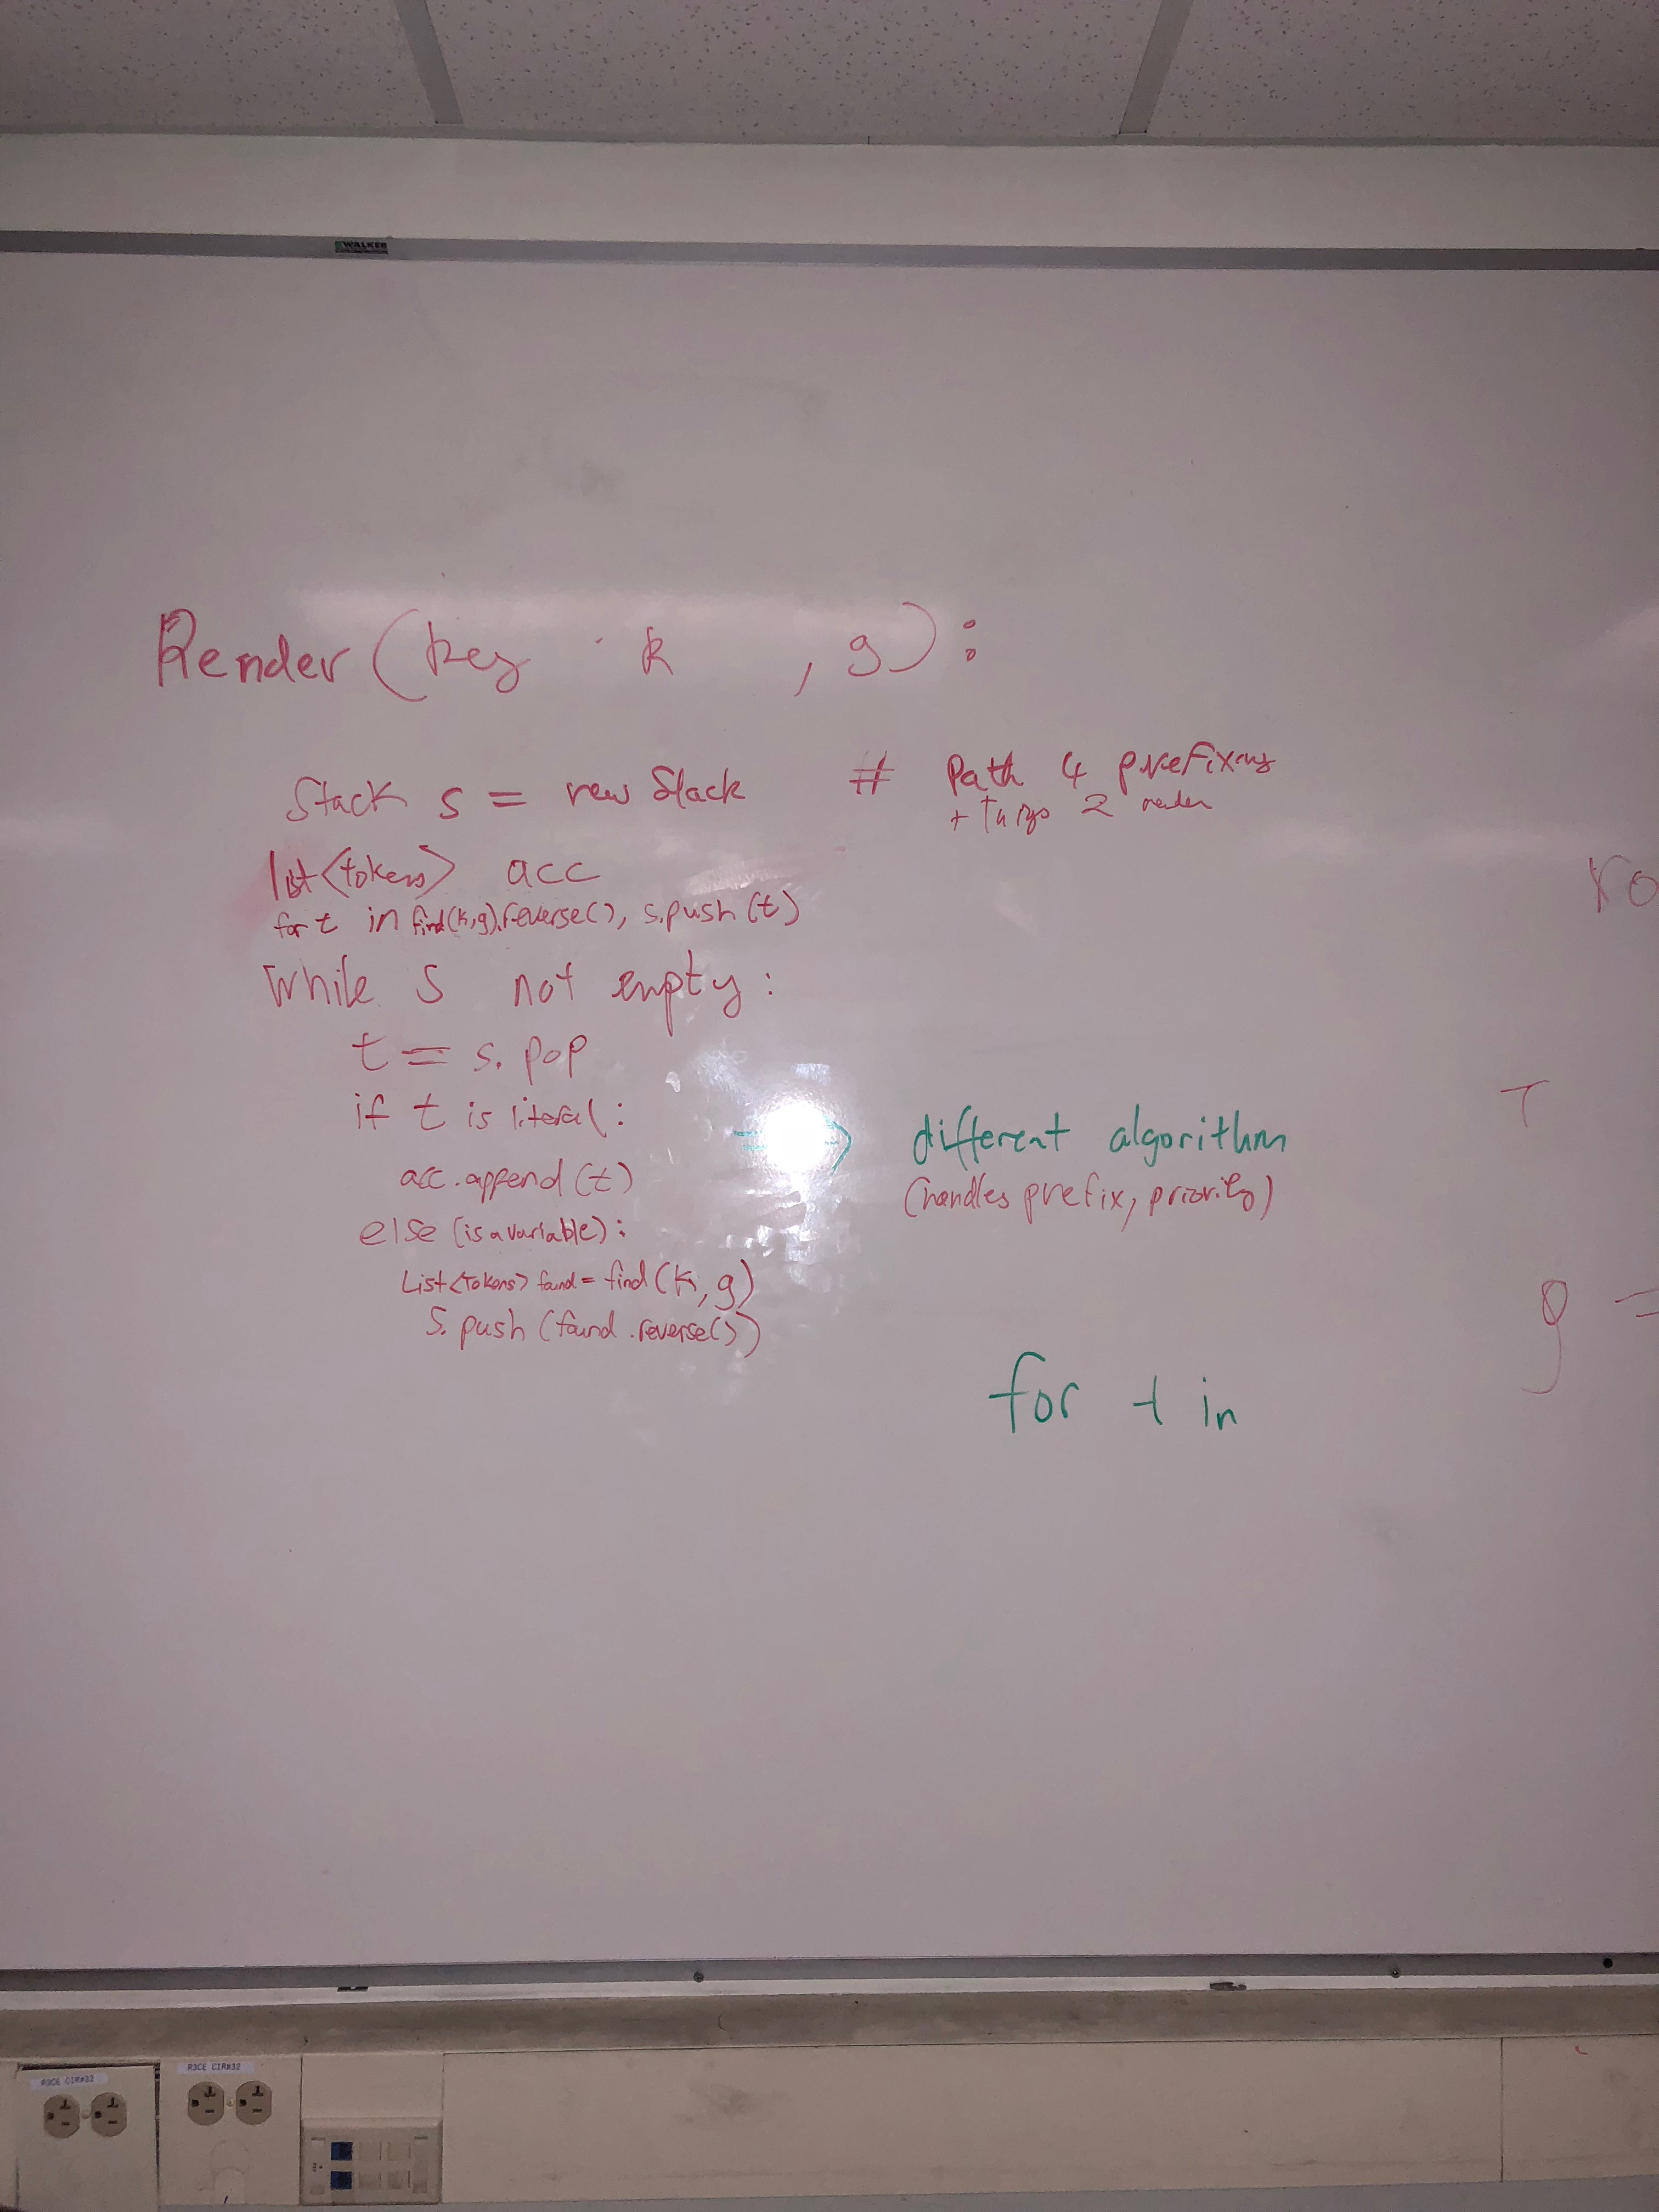 WALKER
Render (key k , g):
Stack s = new Stack # Path 4 prefixing
+ things 2 render
list<tokens> acc
for t in find(k,g).reverse(), s.push(t)
While S not empty:
t = s. pop
if t is literal:
acc.append(t)
else (is a variable):
List<Tokens> found = find(k, g)
S. push (found .reverse())
=> different algorithm
(handles prefix, priority)
for t in
ro
T
g =
R3CE CIR#32
R3CE CIR#32